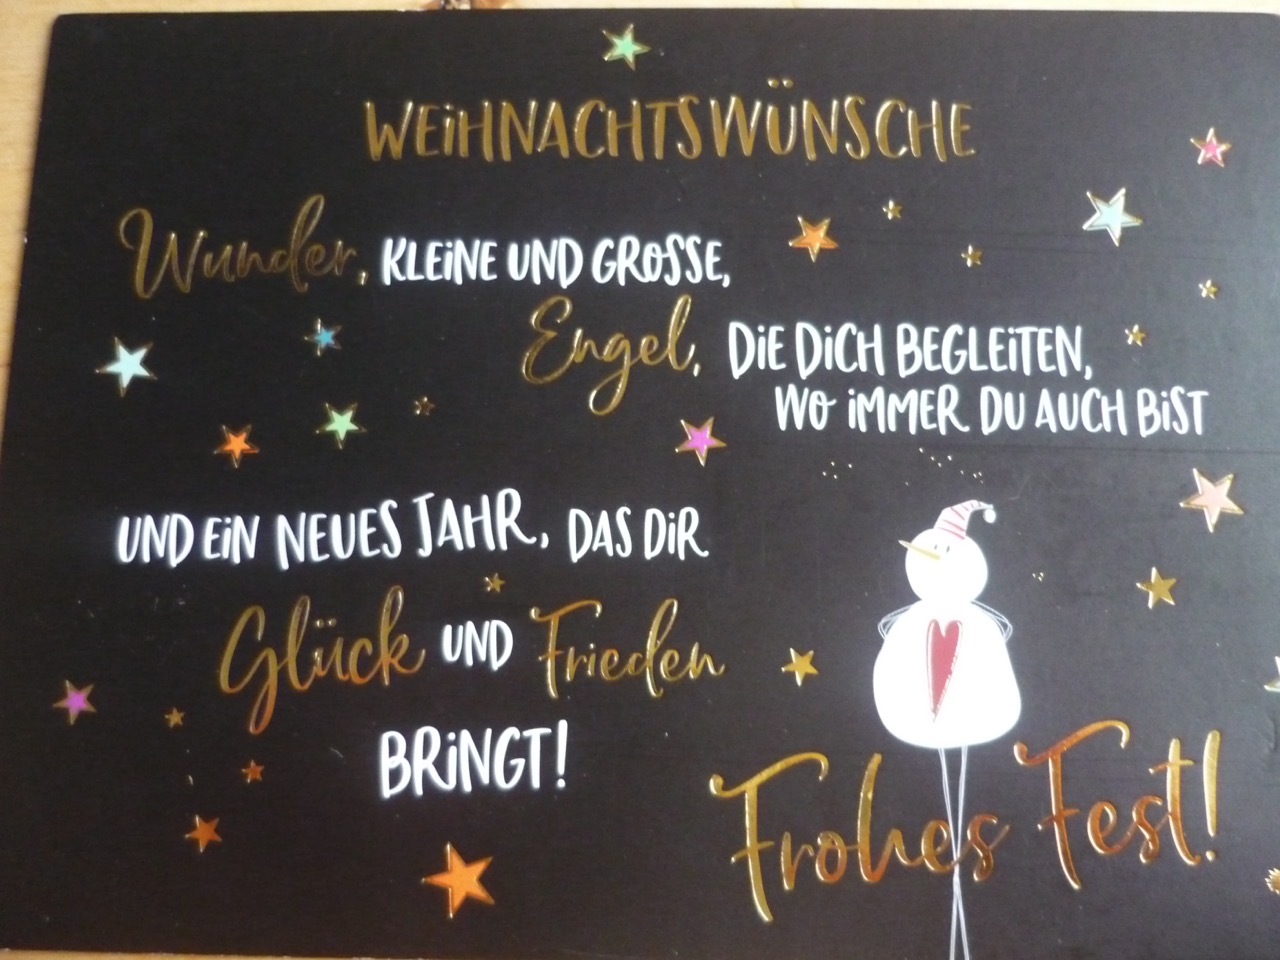 WEiHNACHTSWÜNSCHE
Wunder, KLEiNE UND GROSSE,
Engel, DiE DiCH BEGLEiTEN,
WO iMMER DU AUCH BiST
UND EiN NEUES JAHR, DAS DiR
Glück UND Frieden
BRiNGT!
Frohes Fest!